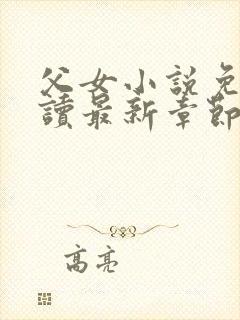 父女小説免
讀最新章節
高亮